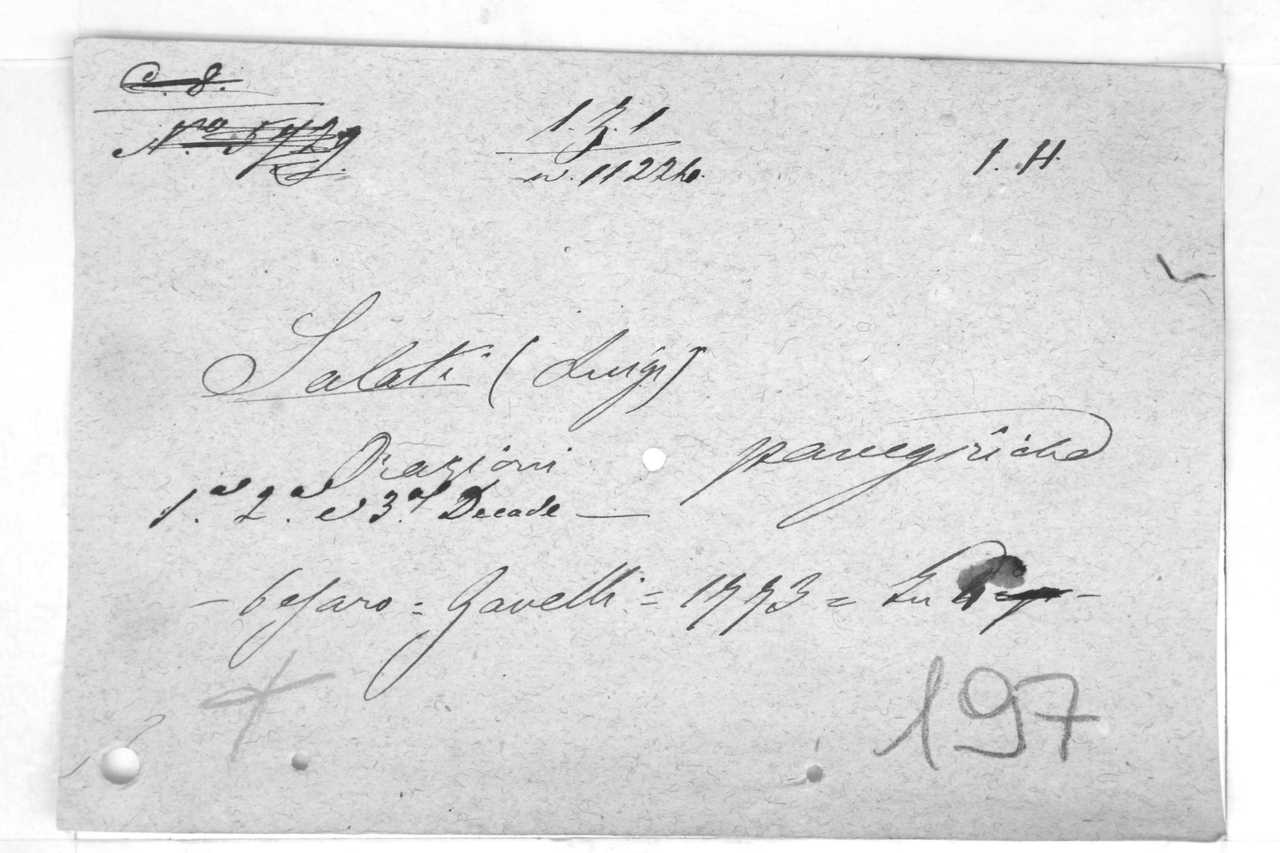 C. 8.
N.ro 5729
1.7.1
n. 11224.
1. H.
Salati (Luigi)
Orazioni panegiriche
1.a 2.a e 3.a Decade —
— Pesaro = Gavelli = 1773 = In —
197